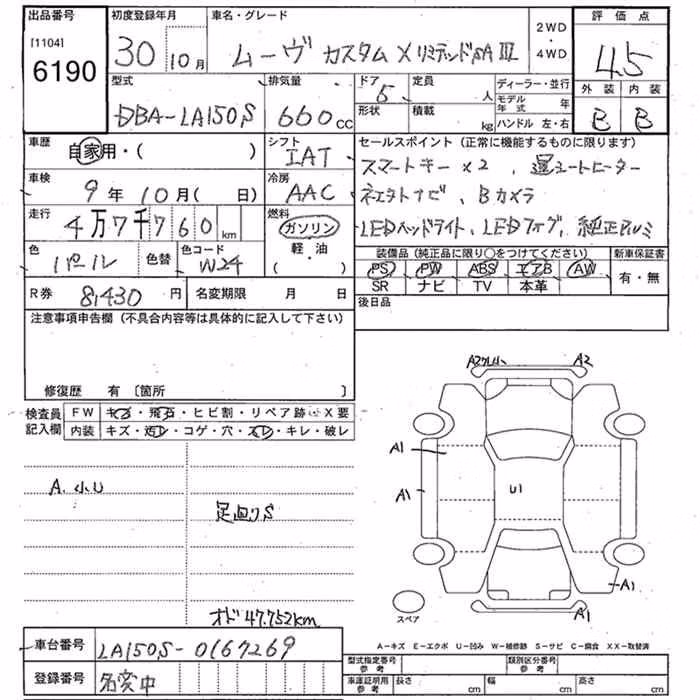 出品番号 初度登録年月 車名・グレード 2WD・4WD 評価点
[1104]
6190
30 10月 ムーヴ カスタム X リミテッドSAⅢ 4.5
型式 排気量 ドア 定員 人 ディーラー・並行 外装 内装
DBA-LA150S 660cc 5 形状 積載 kg モデル年式 年 ハンドル 左・右 B B
車歴 自家用・( ) シフト IAT セールスポイント (正常に機能するものに限ります)
スマートキー×2、運シートヒーター
車検 9年10月( 日) 冷房 AAC ネクストナビ、Bカメラ
走行 4万7千760km 燃料 ガソリン 軽・油 ( ) LEDヘッドライト、LEDフォグ、純正アルミ
色 パール 色替 色コード W24 装備品(純正品に限り○をつけてください) 新車保証書
PS PW ABS エアB AW 有・無
SR ナビ TV 本革
R券 8,430円 名変期限 月 日 後日品
注意事項申告欄 (不具合内容等は具体的に記入して下さい)
修復歴 有 〔箇所 〕
検査員記入欄 FW キズ・飛石・ヒビ割・リペア跡・X要
内装 キズ・汚レ・コゲ・穴・スレ・キレ・破レ
A2 A2
A1
A1
U1
A1
A1
A.小U
足廻りS
オド47.752km
スペア
A-キズ E-エクボ U-凹み W-補修跡 S-サビ C-腐食 XX-取替済
車台番号 LA150S-0167269
登録番号 名変中
型式指定番号 参考 類別区分番号 参考
車庫証明用 参考 長さ cm 幅 cm 高さ cm